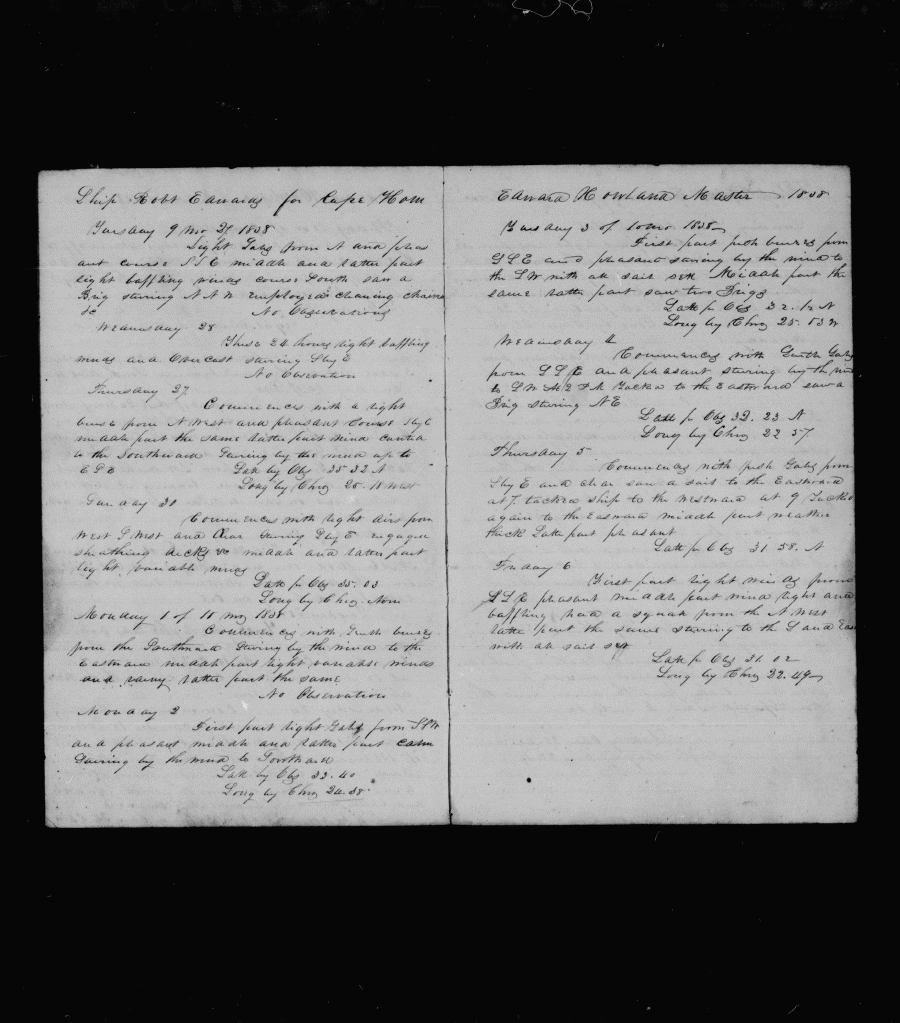 Ship Robt Edwards for Cape Horn
Tuesday 9 mo 1838
Light Gales from N and pleas
ant course SSE middle and latter part
light baffling winds course South saw a
Brig stering N N W employed cleaning chains
&c No Observations
Wednesday 28
These 24 hours light baffling
winds and Overcast stering SbyE
No Obsevation
Thursday 27
Commences with a light
breese from N West and pleasant Course SbyE
middle part the same latter part wind canted
to the Southward Stering by the wind up to
ESE Latt by Obs 35 32 N
Long by Chro 25.18 West
Sunday 30
Commences with light airs from
West S West and clear stering SbyE engaged
sheathing decks &c middle and latter part
light variable winds
Latt pr Obs 35.03
Long by Chro None
Monday 1 of 10 mo 1838
Commences with fresh breeses
from the Southward Stering by the wind to the
Eastward middle part light variable winds
and rainy latter part the same
No Observation
Monday 2
First part light Gales from SSW
and pleasant middle and latter part calm
Stering by the wind to Southard
Latt by Obs 33.40
Long by Chro 24.38
Edward Howland Master 1838
Tuesday 3 of 10 mo 1838
First part fresh breeses from
SSE and pleasant stering by the wind to
the SW with all sail set Middle part the
same latter part saw two Brigs
Latt pr Obs 32.12 N
Long by Chro 25.53 W
Wednesday 4
Commences with Gentle Gales
from SSE and pleasant stering by the wind
to SW At 2 P M Tacked to the Eastward saw a
Brig stering NE
Latt pr Obs 32.23 N
Long by Chro 22 57
Thursday 5
Commences with fresh Gales from
SbyE and clear saw a sail to the Eastward
at 7 tacked ship to the Westward at 9 Tacked
again to the Eastward middle part weather
thick Latter part pleasant
Latt pr Obs 31 58. N
Friday 6
First part light winds from
SSE pleasant middle part wind light and
baffling had a squall from the N West
latter part the same stering to the S and East
with all sail set
Latt pr Obs 31.02
Long by Chro 22.49